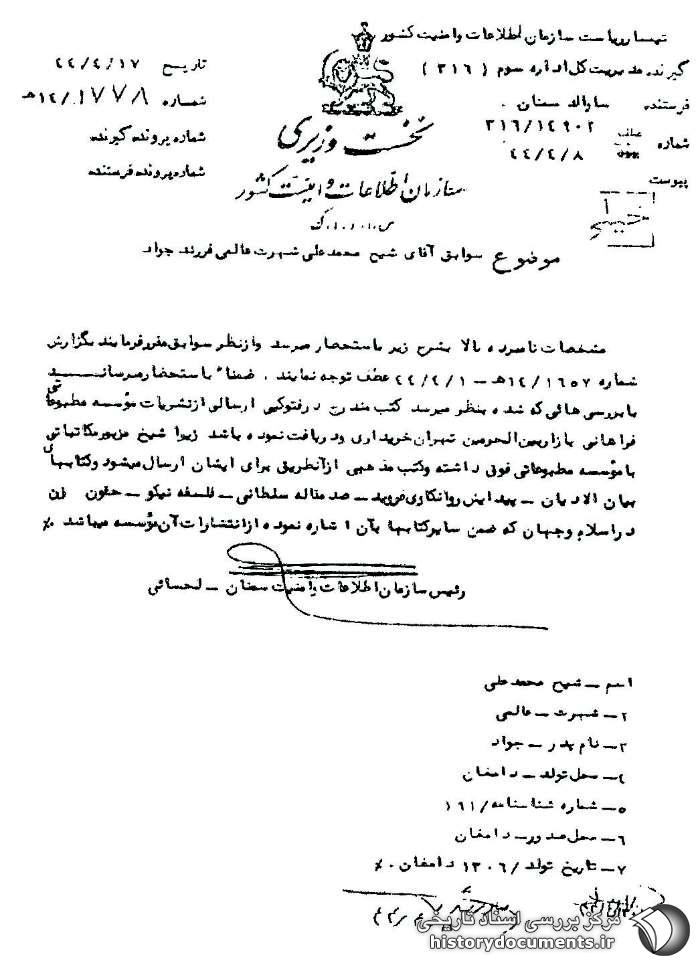 تیمسار ریاست سازمان اطلاعات وامنیت کشور
گیرنده مدیریت کل اداره سوم ( ۳۱۶ )
فرستنده ساواک سمنان .
شماره عطف ۳۱۶/۱۴۹۰۲
۴۴/۴/۸
پیوست
تاریخ ۴۴/۴/۱۷
شماره ۱۴/۱۷۷۸هـ
شماره پرونده گیرنده
شماره پرونده فرستنده
نخست وزیری
سازمان اطلاعات و امنیت کشور
س.ا.و.ا.ک
موضوع سوابق آقای شیخ محمدعلی شهرت عالمی فرزند جواد
مشخصات نامبرده بالا بشرح زیر باستحضار میرسد وازنظر سوابق مقررفرمایند بگزارش
شماره ۱۴/۱۶۵۷هـ – ۴۴/۴/۱ عطف توجه نمایند . ضمنا" باستحضار میرساند
با بررسی هائی که شده بنظر میرسد کتب مندرج درفتوکپی ارسالی ازنشریات مؤسسه مطبوعاتی
فراهانی بازاربین الحرمین تهران خریداری ودریافت نموده باشد زیرا شیخ مزبورمکاتباتی
با مؤسسه مطبوعاتی فوق داشته وکتب مذهبی ازآنطریق برای ایشان ارسال میشود وکتابهای
بیان الادیان – پیدایش روانکاوی فروید – صد مقاله سلطانی – فلسفه نیکو – حقوق زن
در اسلام وجهان که ضمن سایرکتابها بآن اشاره نموده ازانتشارات آن مؤسسه میباشد ٪
رئیس سازمان اطلاعات وامنیت سمنان – لحسائی
اسم – شیخ محمدعلی
۲– شهرت – عالمی
۳– نام پدر – جواد
۴– محل تولد – دامغان
۵– شماره شناسنامه / ۱۶۱
۶– محل صدور – دامغان
۷– تاریخ تولد / ۱۳۰۶ دامغان . ٪
مرکز بررسی اسناد تاریخی
historydocuments.ir